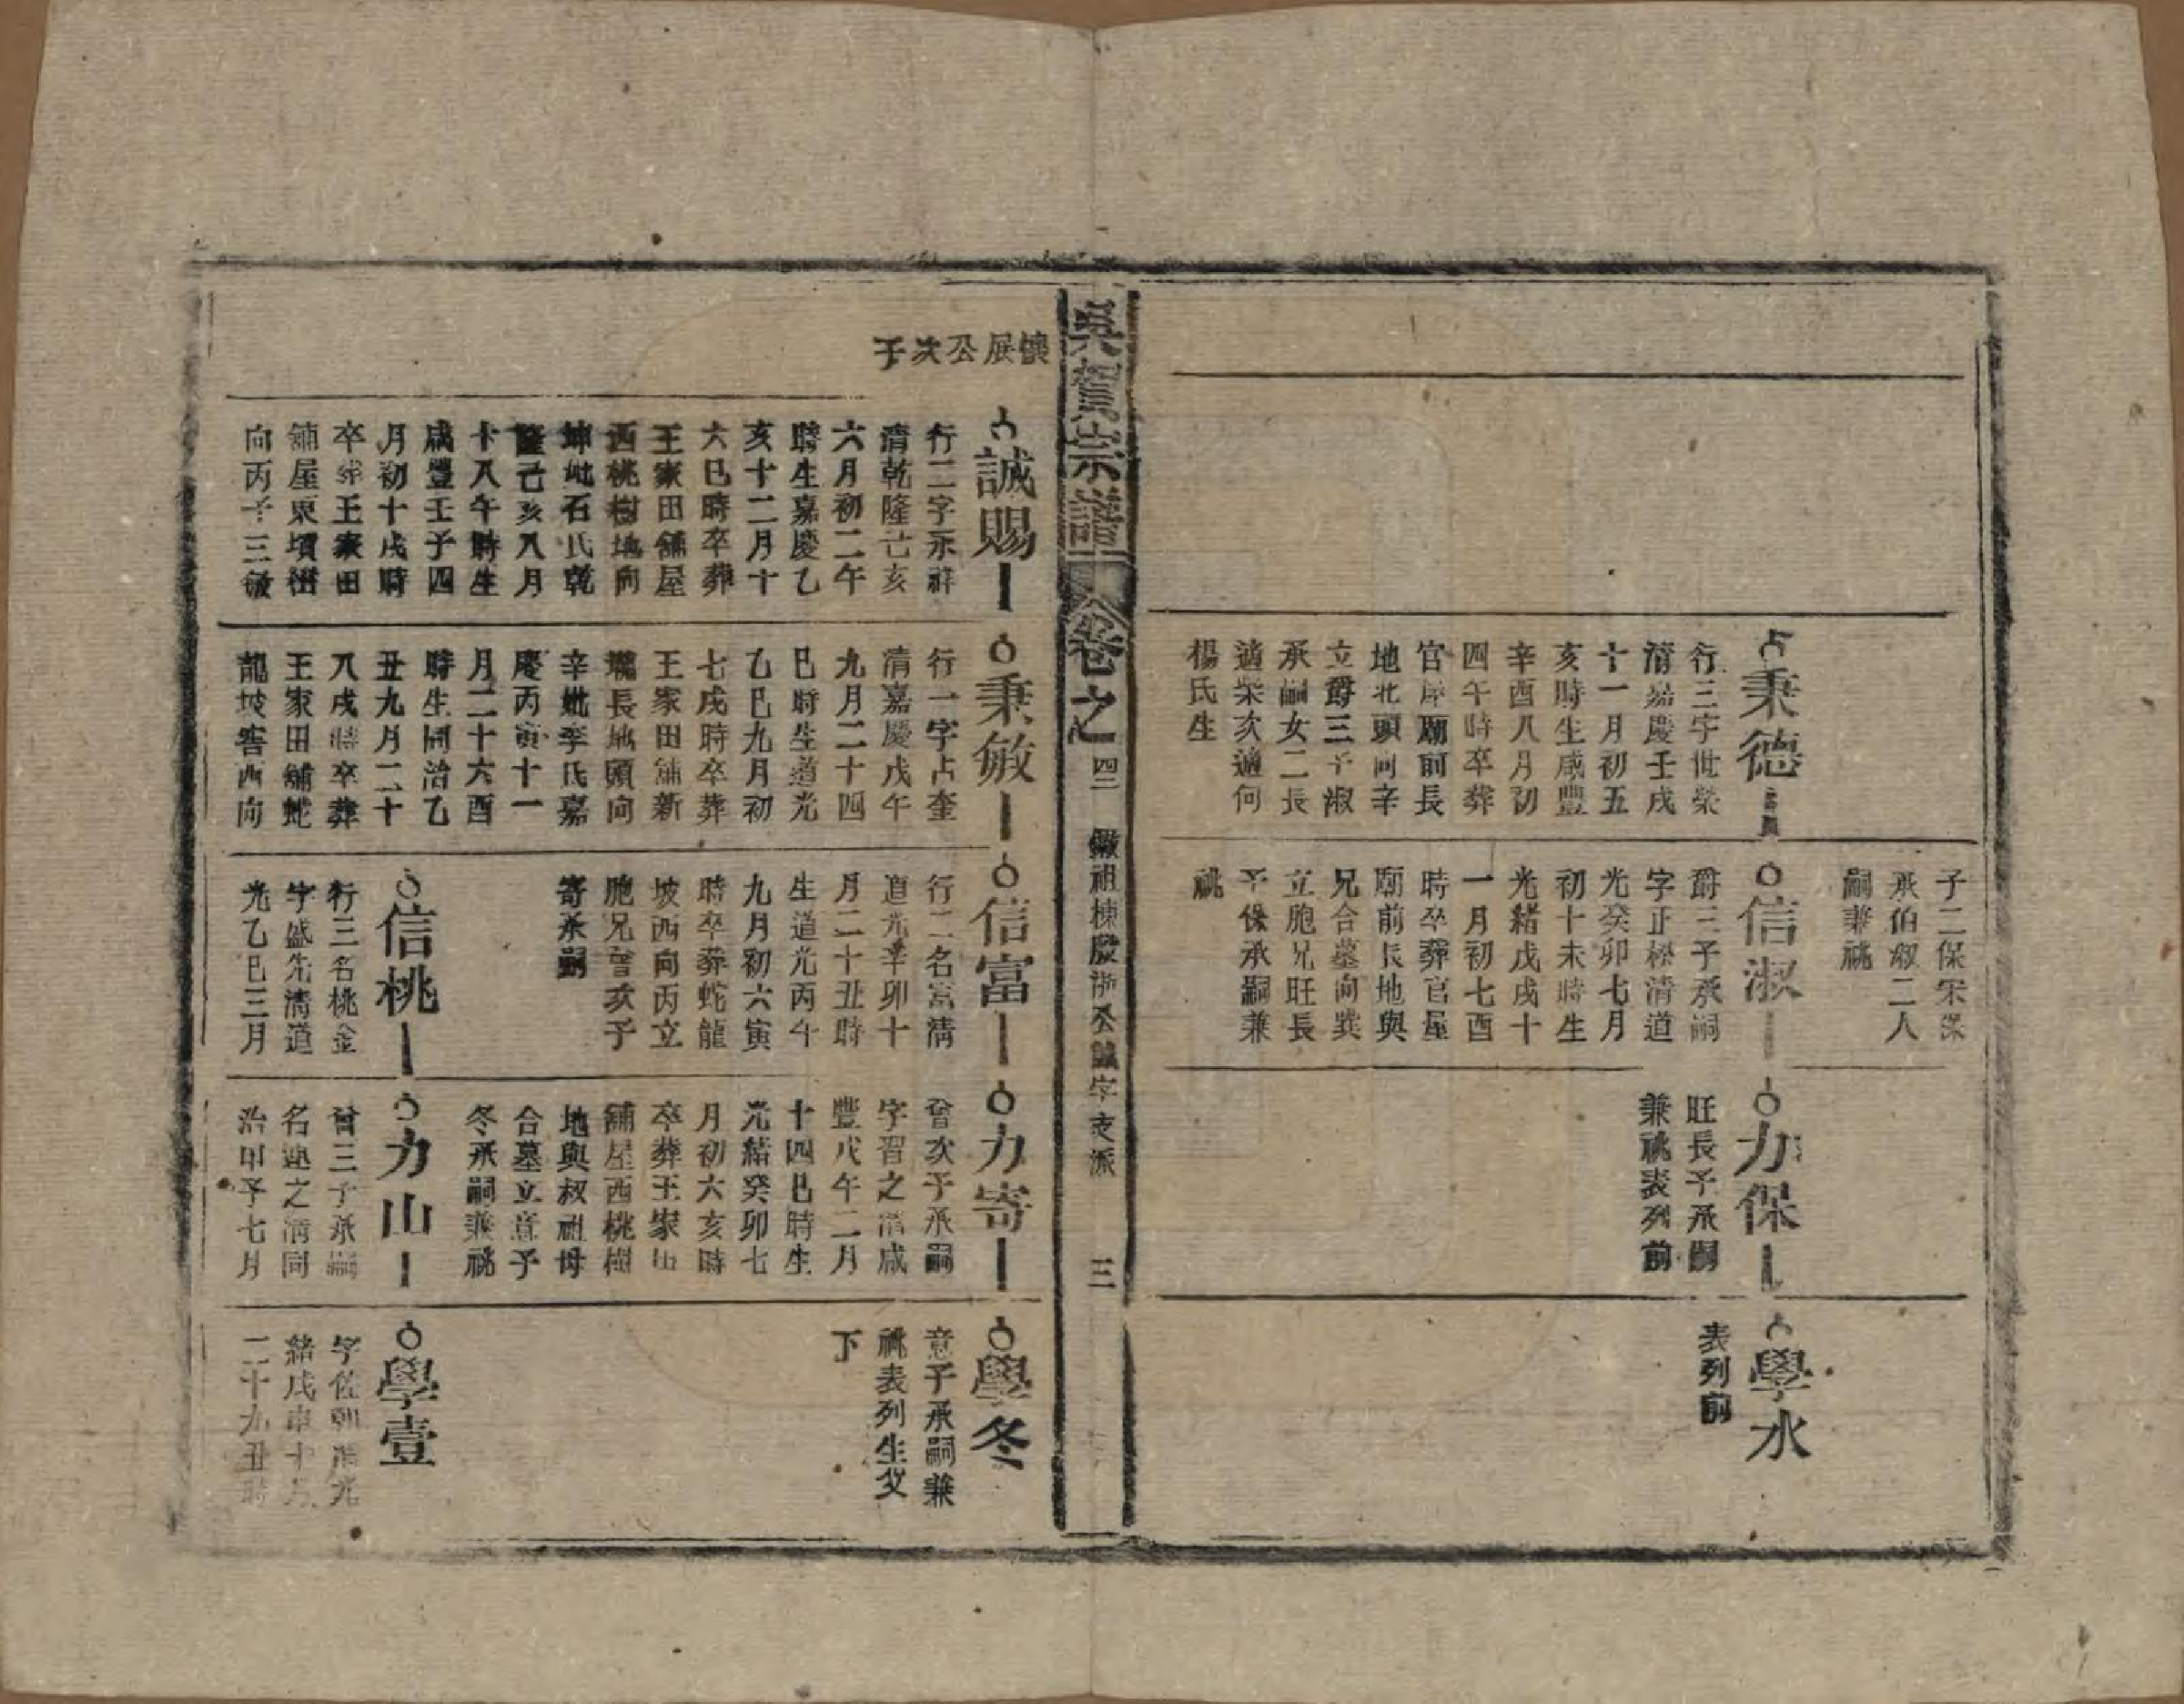 秉德
行三字世榮
清嘉慶壬戌
十一月初五
亥時生咸豐
辛酉八月初
四午時卒葬
官屋廟前長
地北頭向辛
立爵三子淑
承嗣女二長
適柴次適何
楊氏生
子二保宋深
承伯叔二人
嗣兼祧
信淑
爵三子承嗣
字正松清道
光癸卯七月
初十未時生
光緒戊戌十
一月初七酉
時卒葬官屋
廟前長地與
兄合墓向巽
立胞兄旺長
子保承嗣兼
祧
力保
旺長子承嗣
兼祧表列前
學水
表列前
吳賀宗譜
卷之
四二
徽祖棟殷浙公誠字支派
三
懷展公次子
誠賜
行二字永祥
清乾隆己亥
六月初二午
時生嘉慶乙
亥十二月十
六巳時卒葬
王家田舖屋
西桃樹地向
坤妣石氏乾
隆己亥八月
十八午時生
咸豐壬子四
月初十戌時
卒葬王家田
舖屋東墳塋
向丙子三敏
秉敏
行一字占奎
清嘉慶戊午
九月二十四
巳時生道光
乙巳九月初
七戌時卒葬
王家田舖新
壠長地頭向
辛妣李氏嘉
慶丙寅十一
月二十六酉
時生同治乙
丑九月二十
八戌時卒葬
王家田舖蛇
龍坡窖西向
信富
行二名富清
道光辛卯十
月二十丑時
生道光丙午
九月初六寅
時卒葬蛇龍
坡西向丙立
胞兄曾次子
寄承嗣
信桃
行三名桃金
字盛先清道
光乙巳三月
力寄
曾次子承嗣
字習之清咸
豐戊午二月
十四巳時生
光緒癸卯七
月初六亥時
卒葬王家田
舖屋西桃樹
地與叔祖母
合墓立意子
冬承嗣兼祧
力山
曾三子承嗣
名連之清同
治甲子七月
學冬
意子承嗣兼
祧表列生父
下
學壹
字佐朝清光
緒戊申十月
二十九丑時